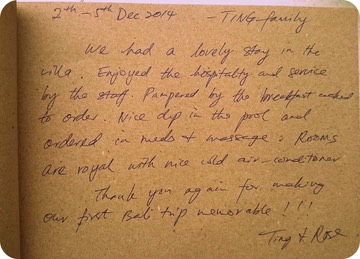 2th - 5th Dec 2014 - TING family
We had a lovely stay in the
villa. Enjoyed the hospitality and service
by the staff. Pampered by the breakfast cooked
to order. Nice dip in the pool and
ordered in meds & massage. Rooms
are royal with nice cold air-conditoner
Thank you again for making
our first Bali trip memorable !!!
Ting & Rose